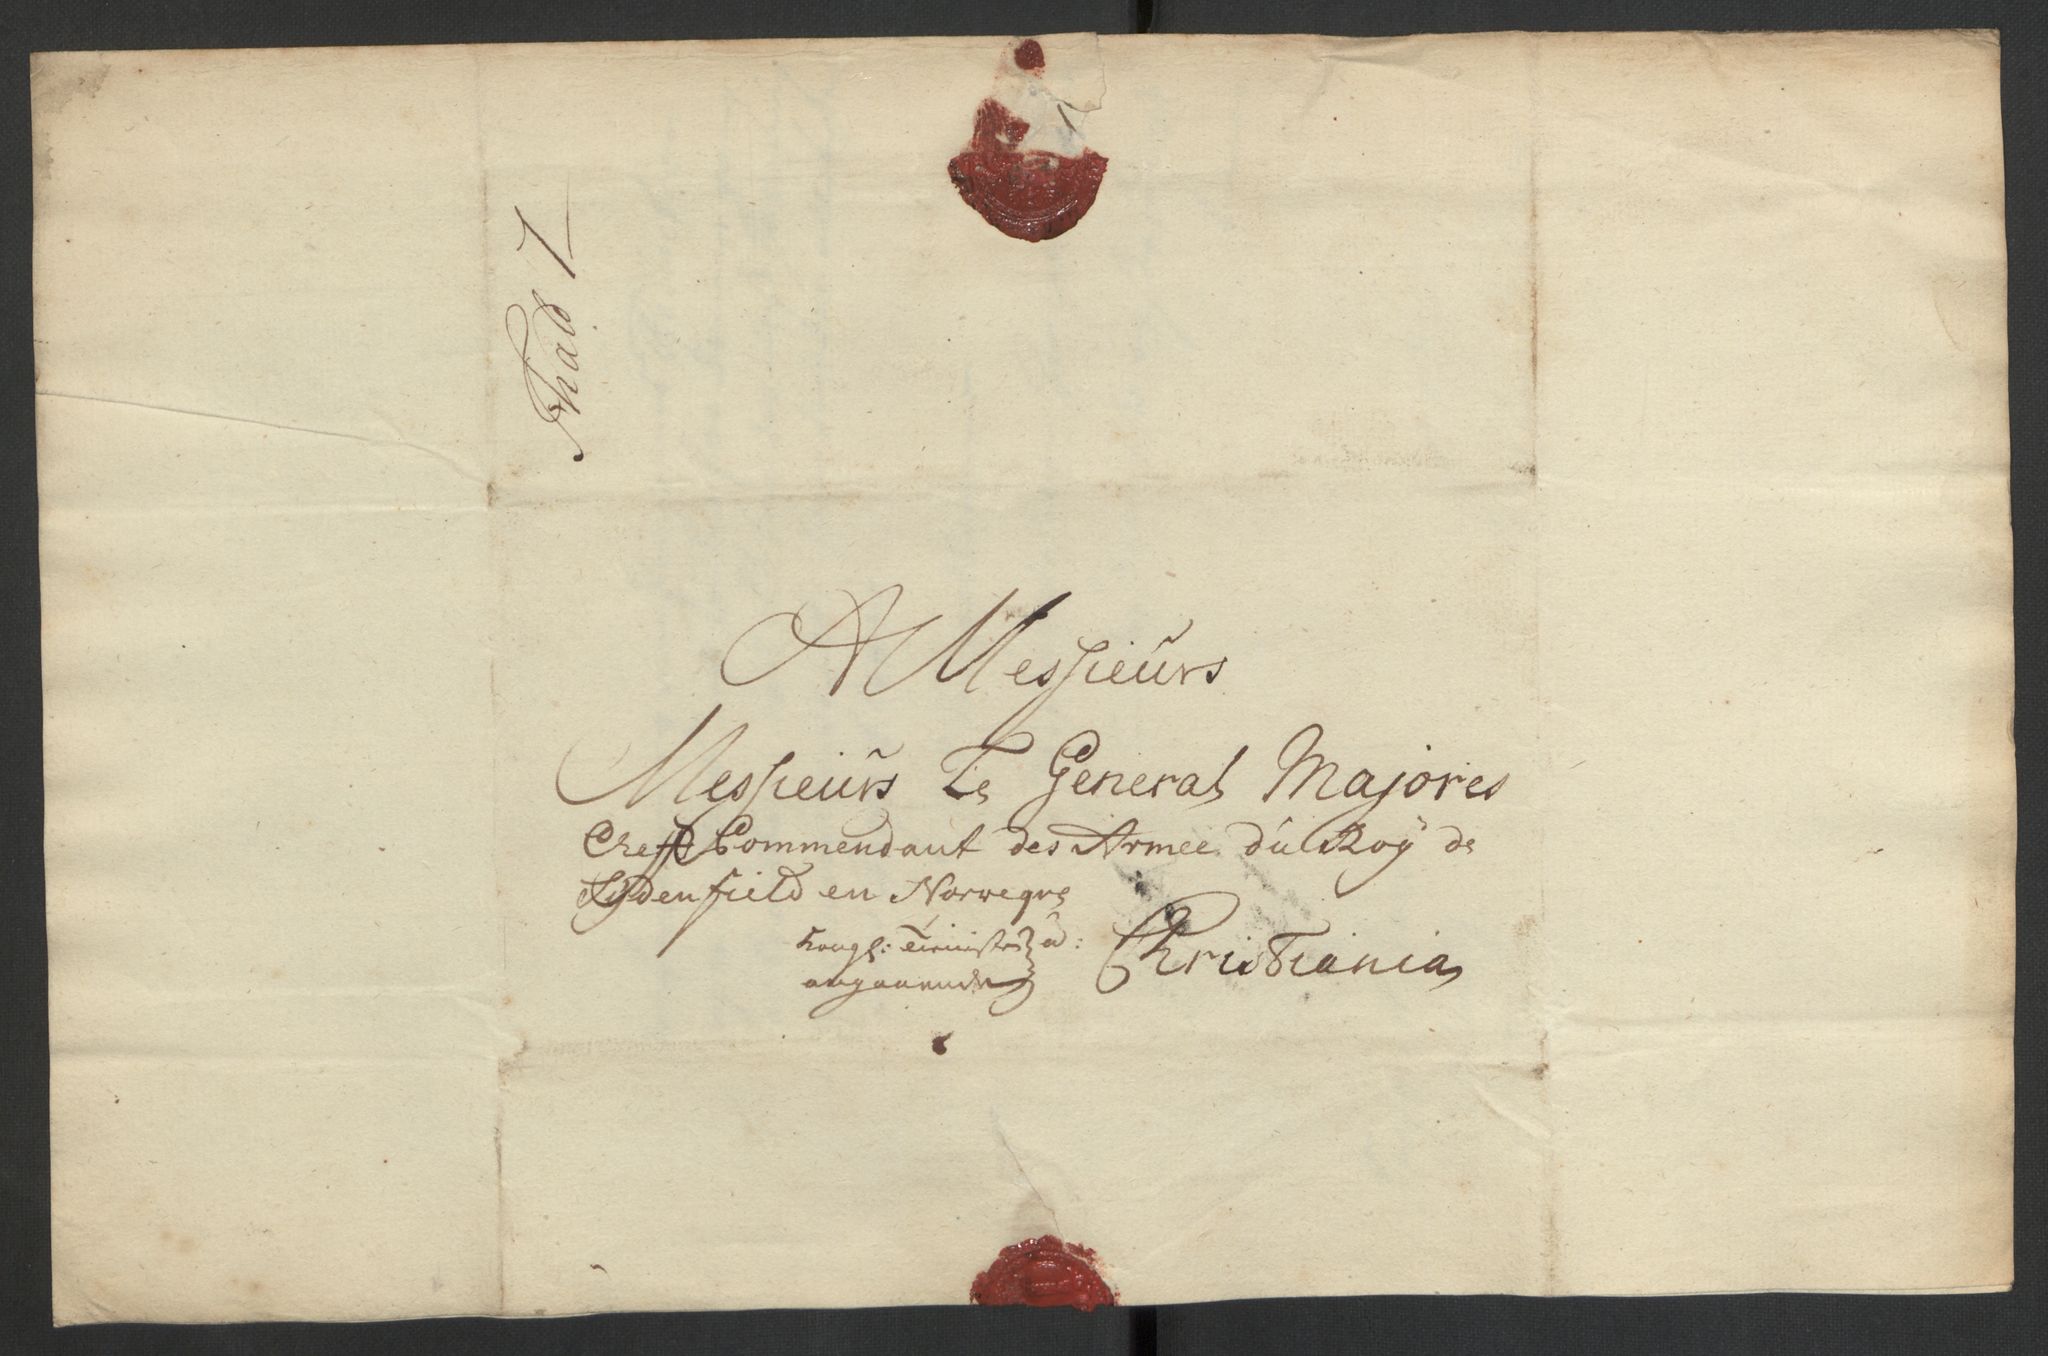 Fhald 7
A Messieurs
Messieurs Le General Majores
Cheff Commendant des Armee du Roÿ de
Sydenfield en Norwegue
Kongl: Tieniste
angaaende
â: Christiania